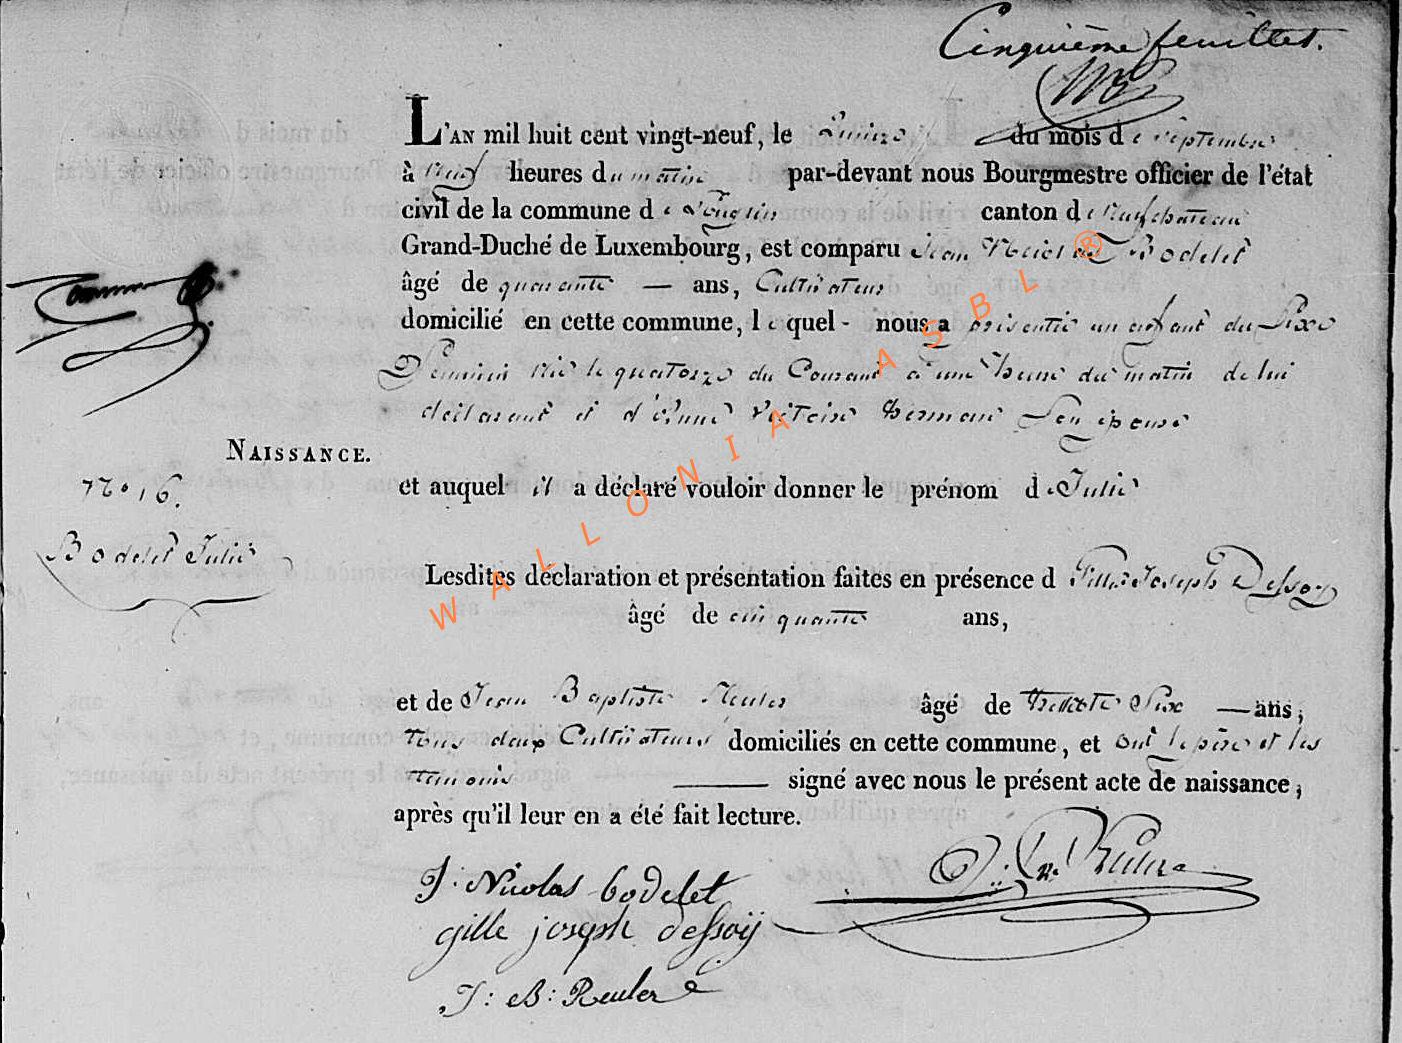 Cinquième feuillet.
L'AN mil huit cent vingt-neuf, le quinze du mois de septembre
à neuf heures du matin par-devant nous Bourgmestre officier de l'état
civil de la commune de canton de Neufchateau
Grand-Duché de Luxembourg, est comparu Jean Nicolas Bodelet
âgé de quarante — ans, Cultivateur
domicilié en cette commune, lequel - nous a présenté un enfant du Sexe
Féminin Née le quatorze du Courant à une heure du matin de lui
déclarant et d'Anne Victoire Son épouse
NAISSANCE.
N° 16.
et auquel il a déclaré vouloir donner le prénom de Julie
Bodelet Julie
Lesdites déclaration et présentation faites en présence d Gille Joseph Dessoy
âgé de cinquante ans,
et de Jean Baptiste Reuler âgé de Trente Six — ans,
Tous deux Cultivateurs domiciliés en cette commune, et ont le père et les
témoins — signé avec nous le présent acte de naissance,
après qu'il leur en a été fait lecture.
J. Nicolas bodelet
gille joseph dessoij
J: B: Reuler
WALLONIA ASBL ®